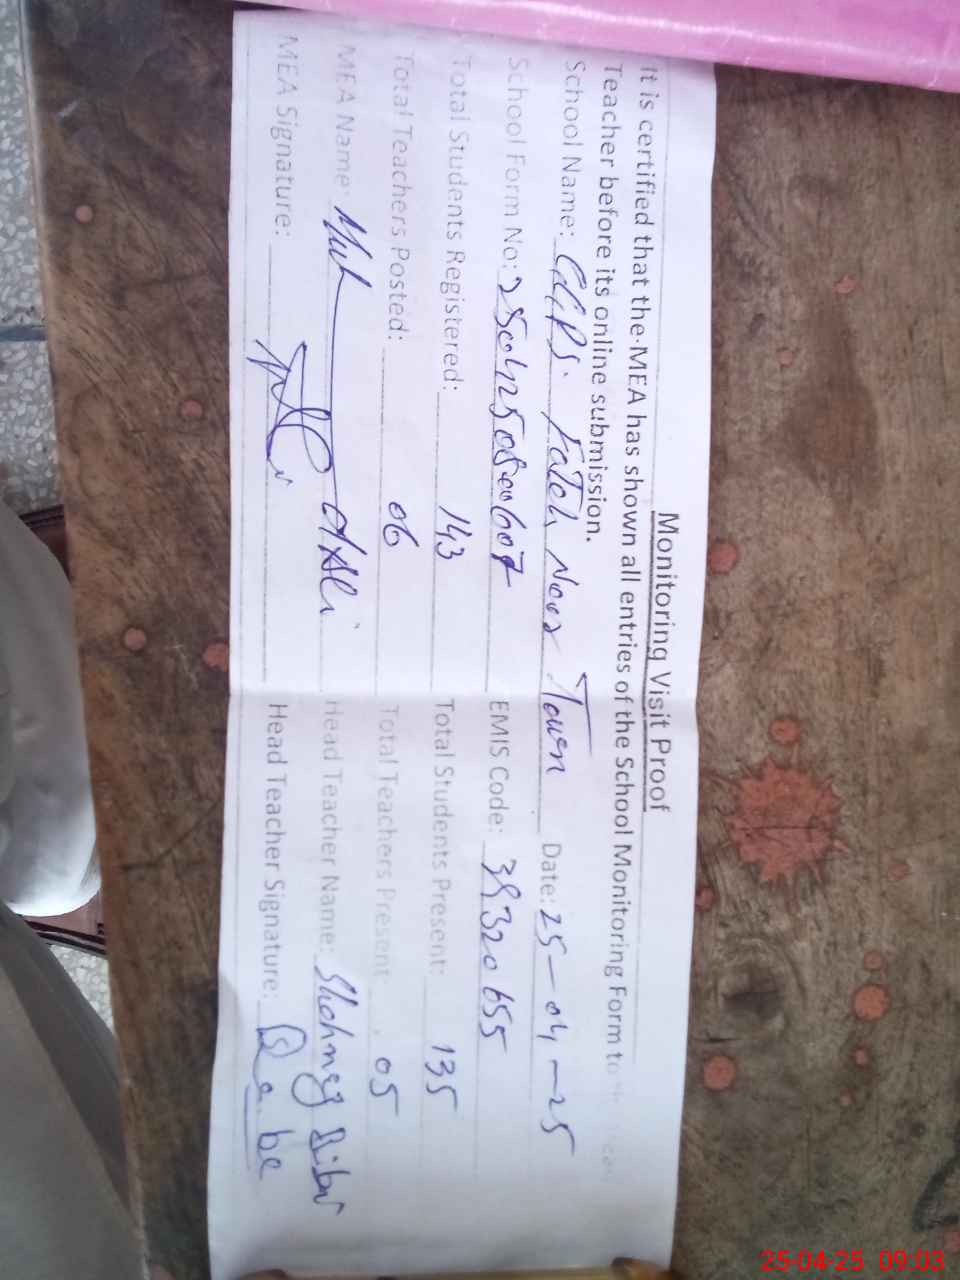 Monitoring Visit Proof
It is certified that the MEA has shown all entries of the School Monitoring Form to
Teacher before its online submission.
School Name: GGPS. Fateh Noor Town Date: 25-04-25
School Form No: 25004250800607 EMIS Code: 38320655
Total Students Registered: 143 Total Students Present: 135
Total Teachers Posted: 06 Total Teachers Present: 05
MEA Name: Head Teacher Name: Bibi
MEA Signature: Head Teacher Signature:
25-04-25 09:03